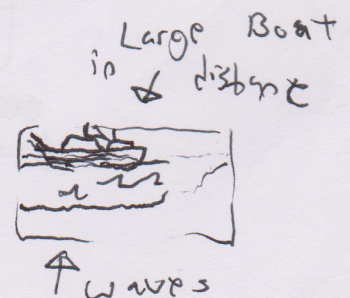 Large Boat
in distance
waves